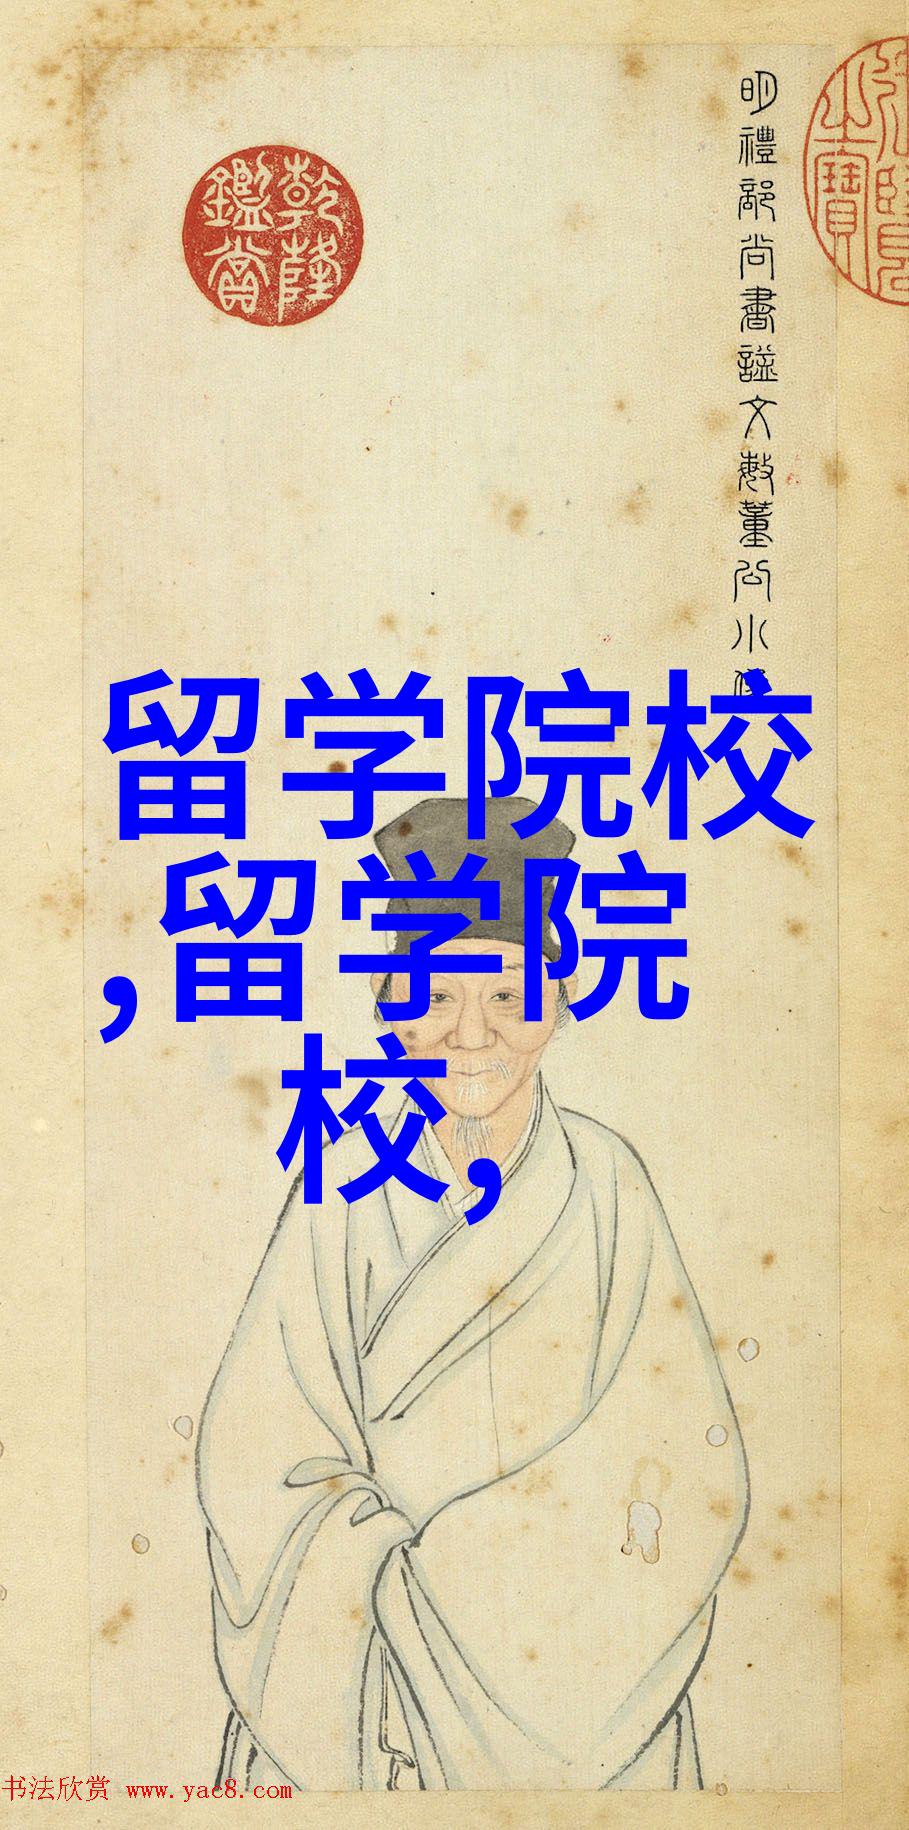 明禮部尚書謚文敏董公小像
乾隆
鑑賞
留学院校
,留学院
校,
书法欣赏 www.yac8.com